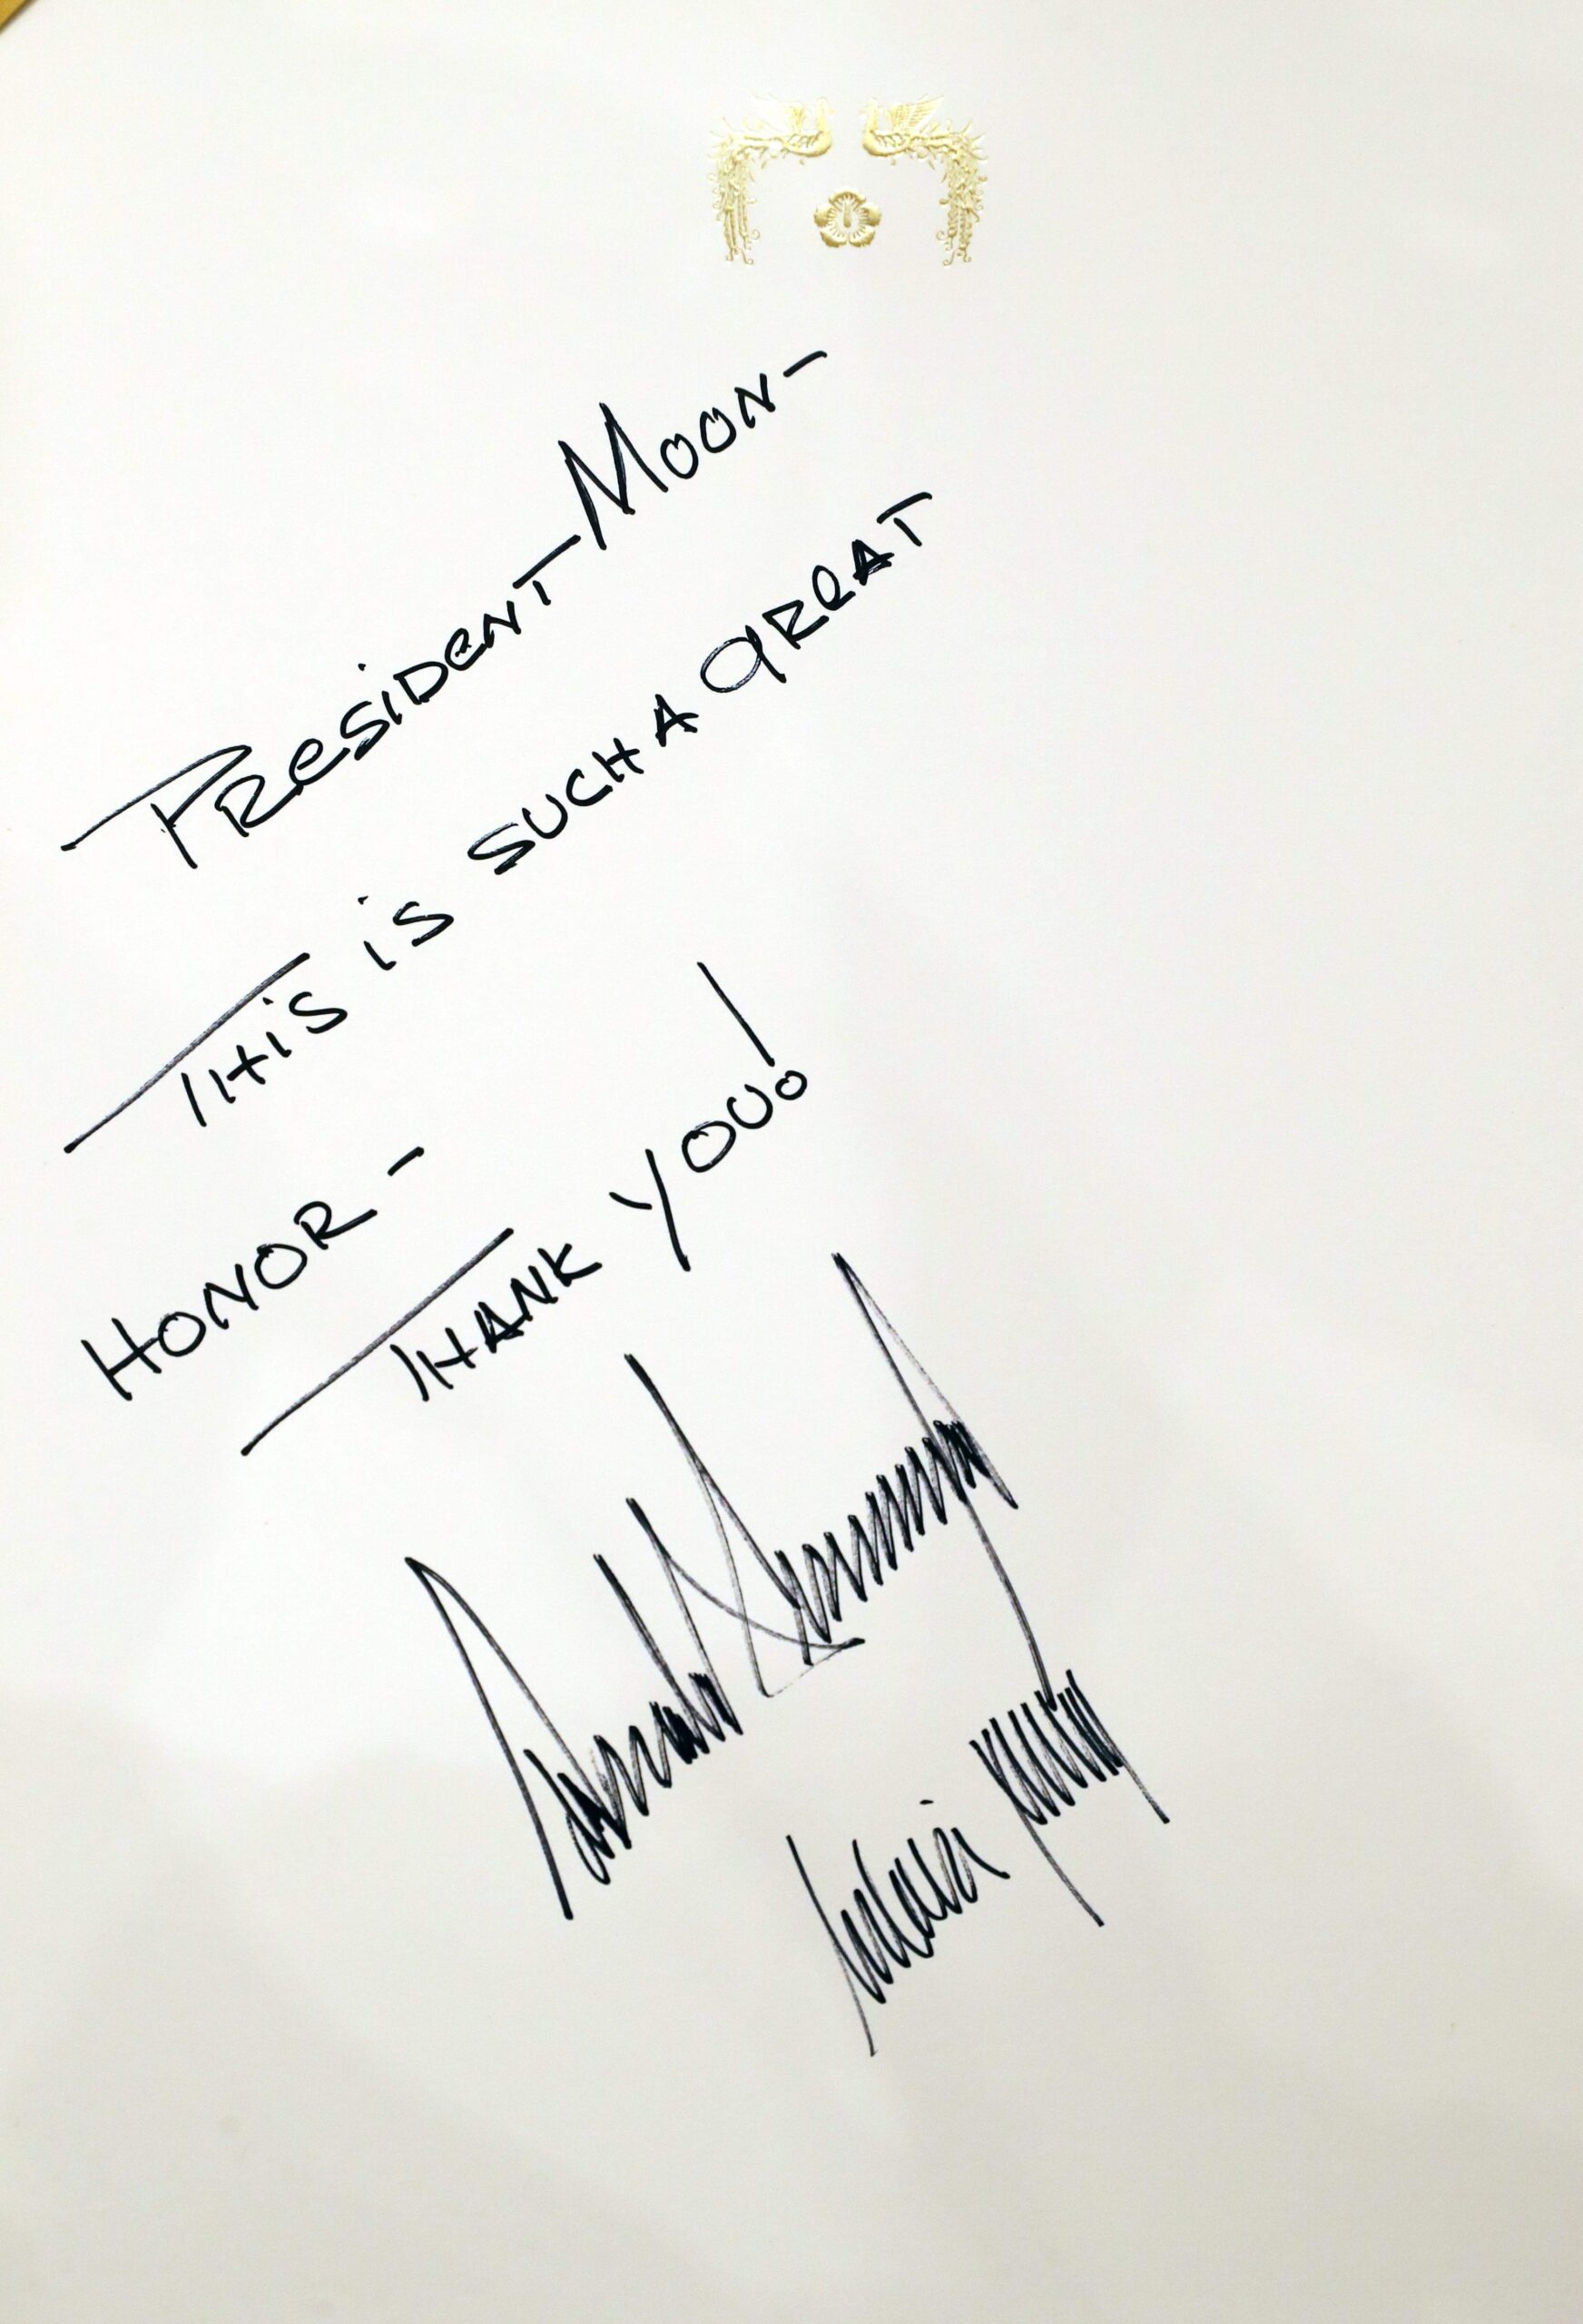 PRESiDENT MOON-
THiS iS SUCH A gREAT
HONOR -
THANK YOU!
Donald Trump
Melania Trump